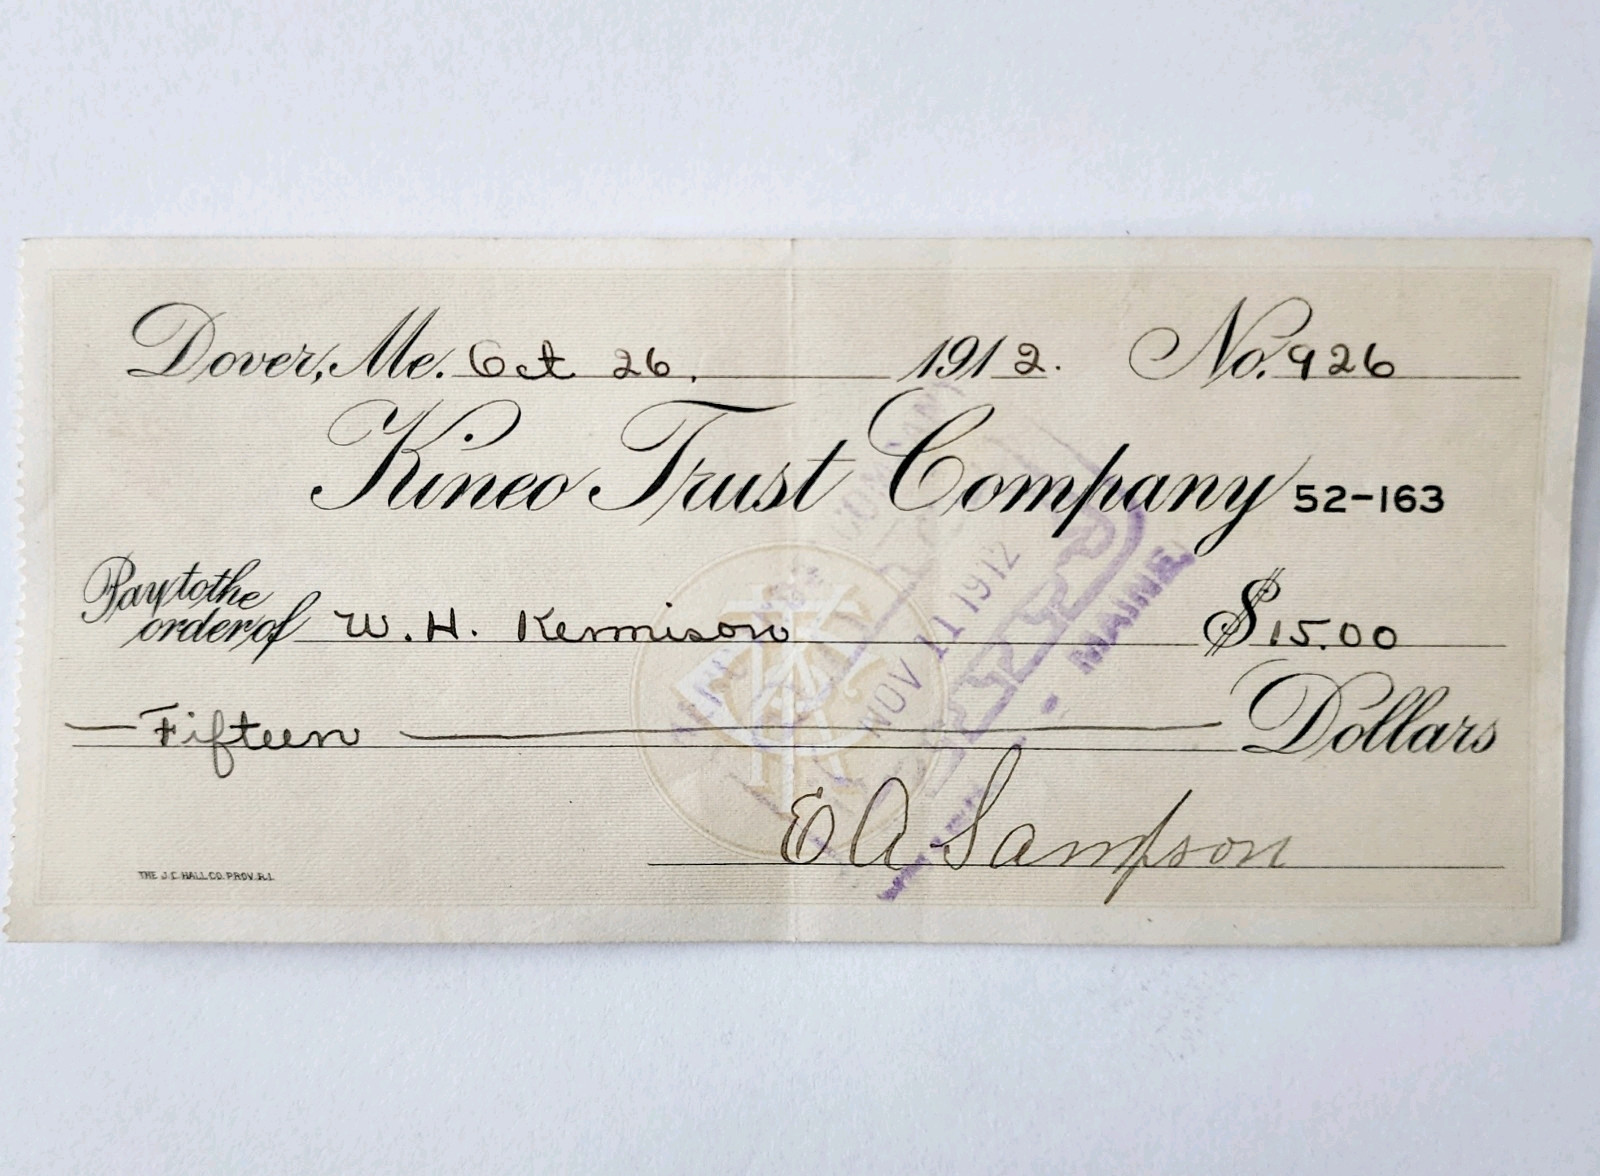 Dover, Me. Oct 26. 1912. No. 926
Kineo Trust Company 52-163
Pay to the
order of W. H. Kennison $15.00
Fifteen Dollars
E A Sampson
THE J.C. HALL CO. PROV. R.I.
COMPANY
NOV 11 1912
PAID
MAINE